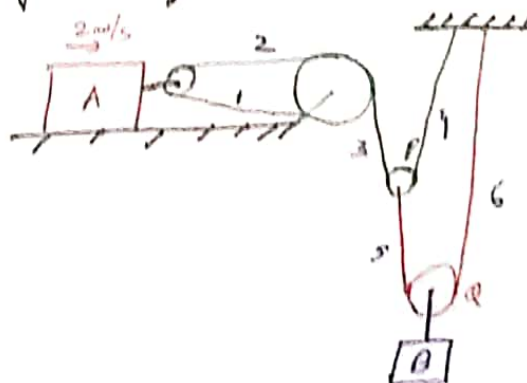 2 m/s
2
A
1
3
P
4
5
6
Q
B